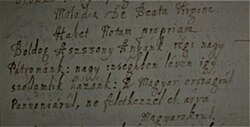 Melodia De Beata Virgine
Habet Notam propriam
Boldog Aszszony Anyank regi nagy
Patronank: nagy inseghben leven igy
szollamlik hazank: Magyar orszagrul
Pannoniarul, ne feletkezzel el arva
Magyarokrul.